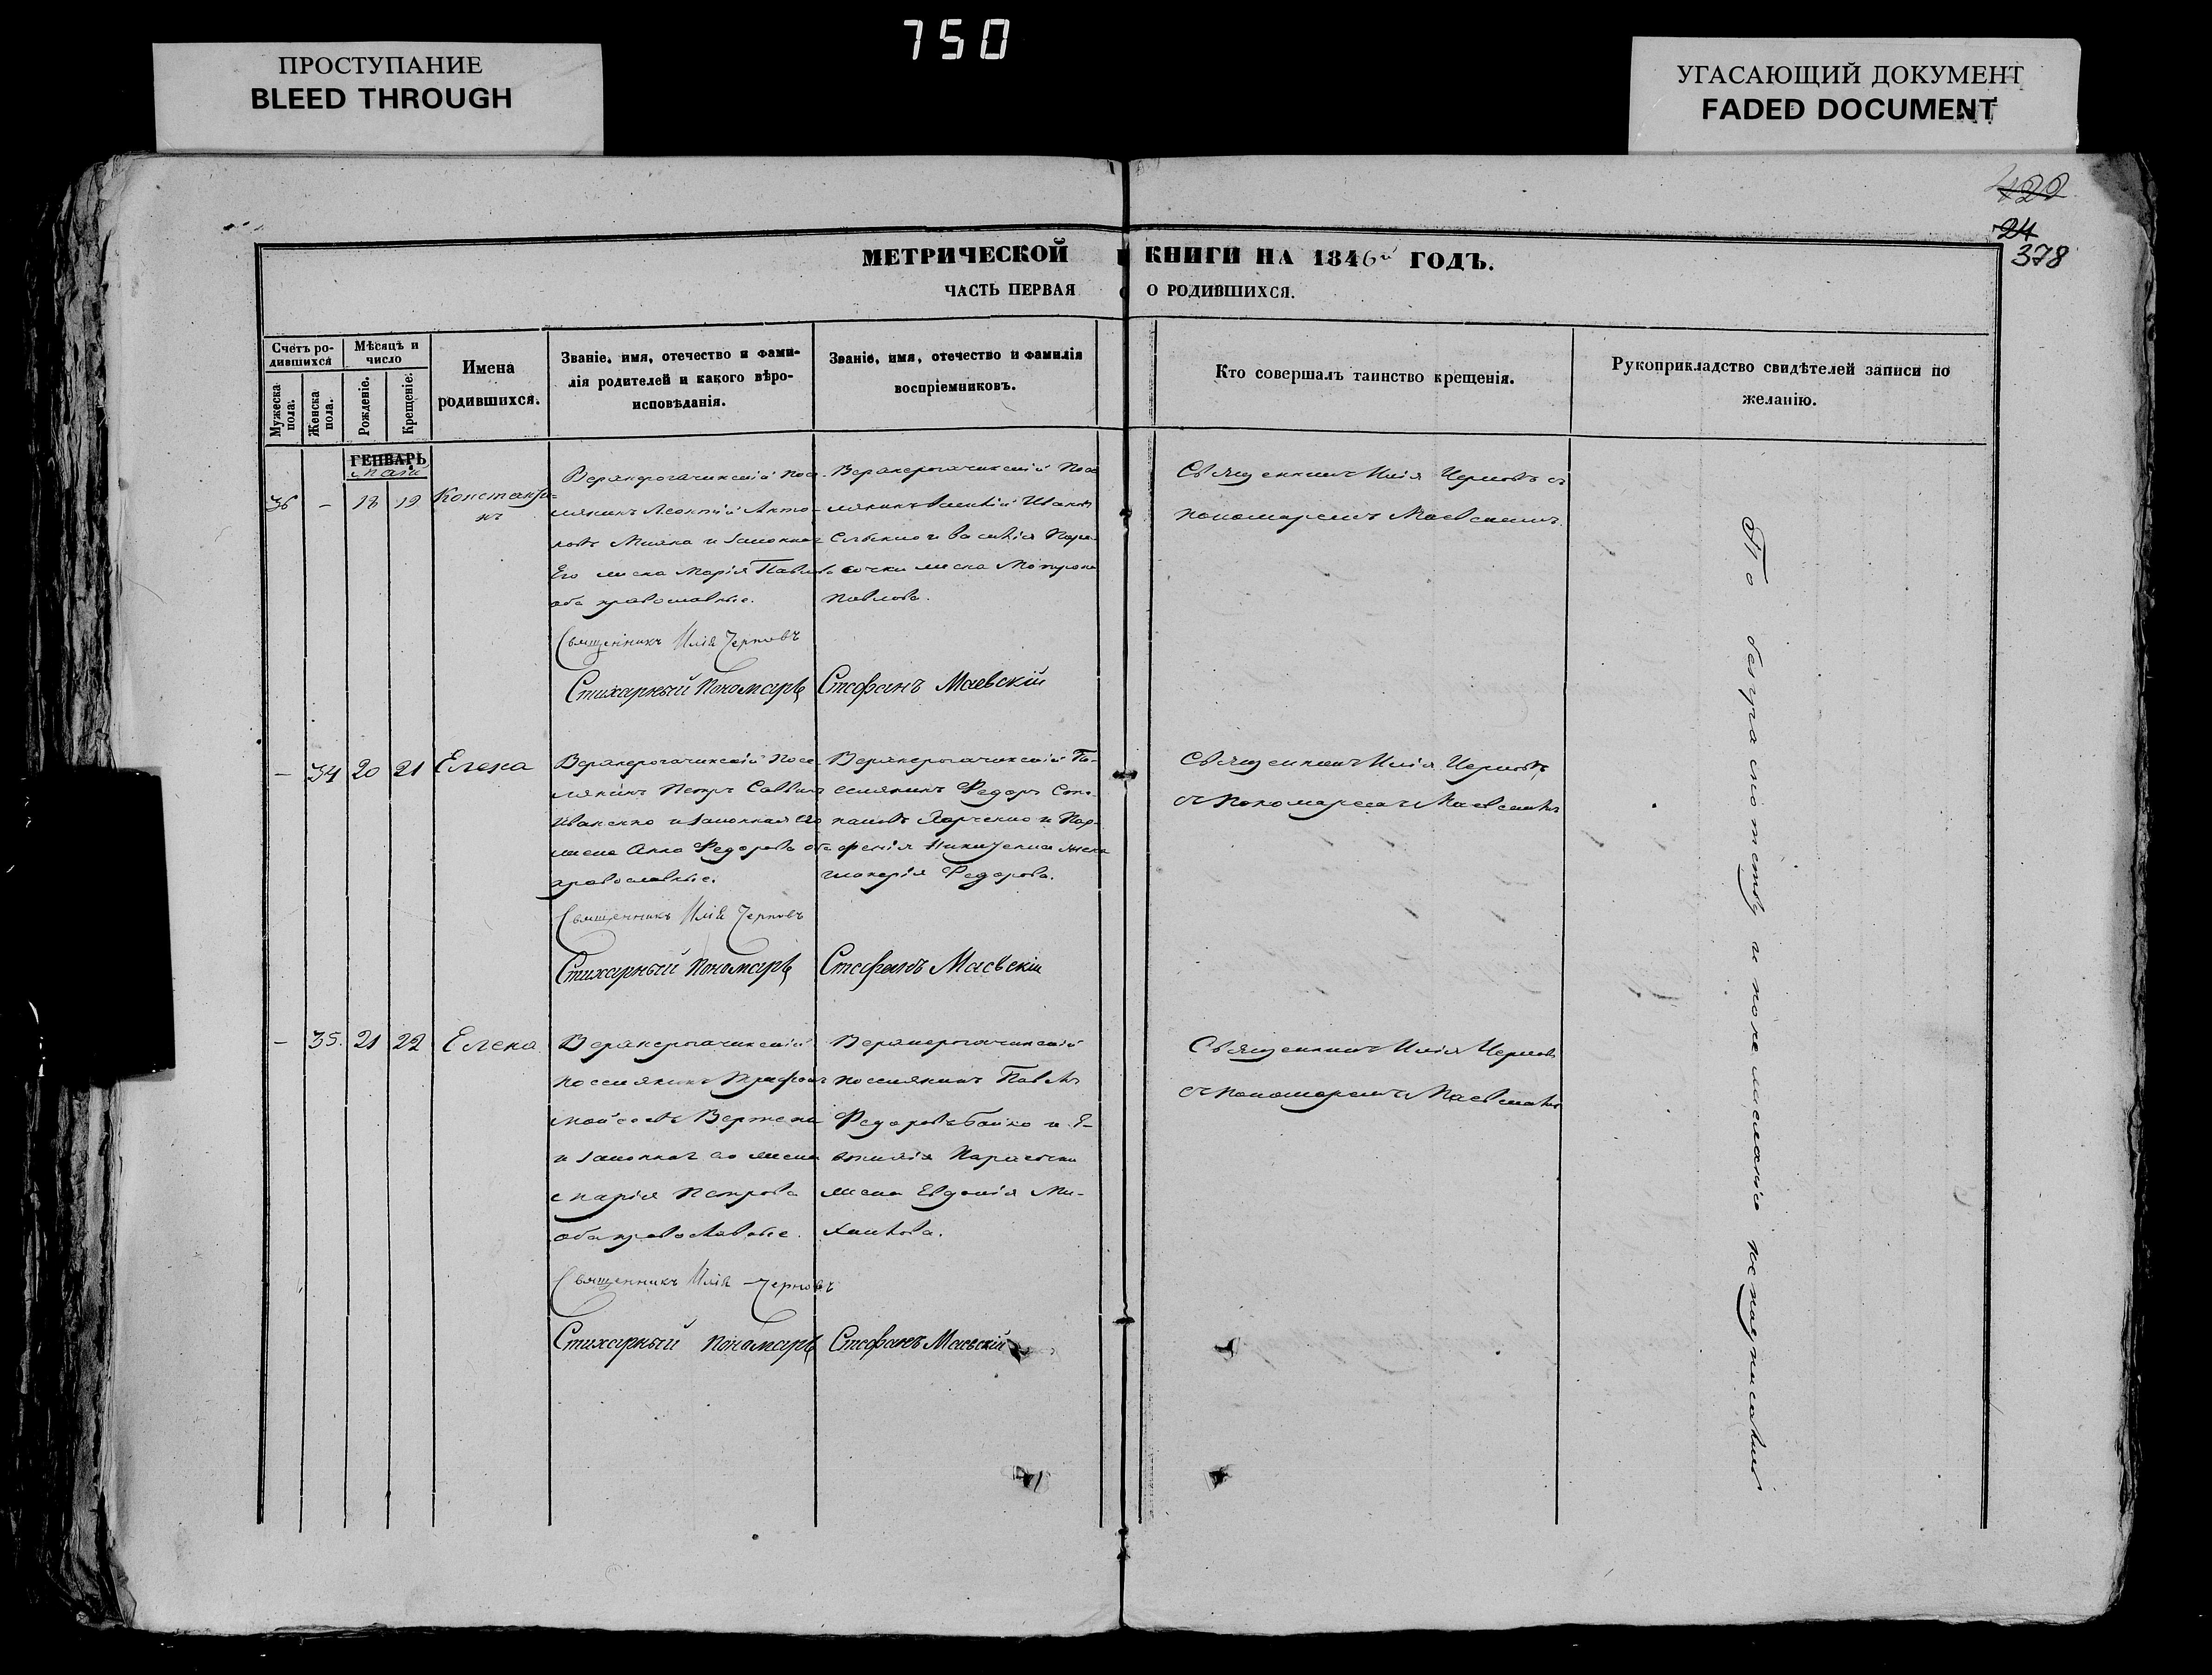 750
ПРОСТУПАНИЕ
BLEED THROUGH
УГАСАЮЩИЙ ДОКУМЕНТ
FADED DOCUMENT
422
24
378
МЕТРИЧЕСКОЙ КНИГИ НА 1846й ГОДЪ.
ЧАСТЬ ПЕРВАЯ О РОДИВШИХСЯ.
Счетъ ро-
дившихся
Мужеска
пола.
Женска
пола.
Мѣсяцъ и
число
Рожденіе.
Крещеніе.
Имена
родившихся.
Званіе, имя, отечество и фами-
лія родителей и какого вѣро-
исповѣданія.
Званіе, имя, отечество и фамилія
воспріемниковъ.
Кто совершалъ таинство крещенія.
Рукоприкладство свидѣтелей записи по
желанію.
ГЕНВАРЬ
Май
36 - 18 19
Константи-
нъ
Верхнерогачикскій Посе-
лянинъ Леонтій Анто-
новъ и законная
Его жена Марія Павлова
оба православные.
Верхнерогачикскій Посе-
лянинъ Василій Иванов
жена Матрона
Павлова.
Священникъ Илія Черновъ съ
пономаремъ Маевскимъ.
Священникъ Илія Черновъ
Стихарный Пономарь Стефанъ Маевскій
- 34 20 21 Елена
Верхнерогачикскій Посе-
лянинъ Петръ Саввинъ
Иваненко и законная его
жена Анна Федорова оба
православные.
Верхнерогачикскій По-
селянинъ Федоръ Сте-
пановъ Харченко и Пар-
фенія Никитенка жена
Гликерія Федорова.
Священникъ Илія Черновъ
съ Пономаремъ Маевскимъ
Священникъ Илія Черновъ
Стихарный Пономарь Стефанъ Маевскій
- 35. 21 22 Елена
Верхнерогачикскій
поселянинъ Трифонъ
Мойсеевъ
и законная его жена
Марія Петрова
оба православные.
Верхнерогачикскій
поселянинъ Павелъ
Федоровъ Бойко и Е-
жена Евдокія Ми-
хайлова.
Священникъ Илія Черновъ
съ пономаремъ Маевскимъ
Священникъ Илія Черновъ
Стихарный Пономарь Стефанъ Маевскій
По безграмотству и по нежеланію не подписались